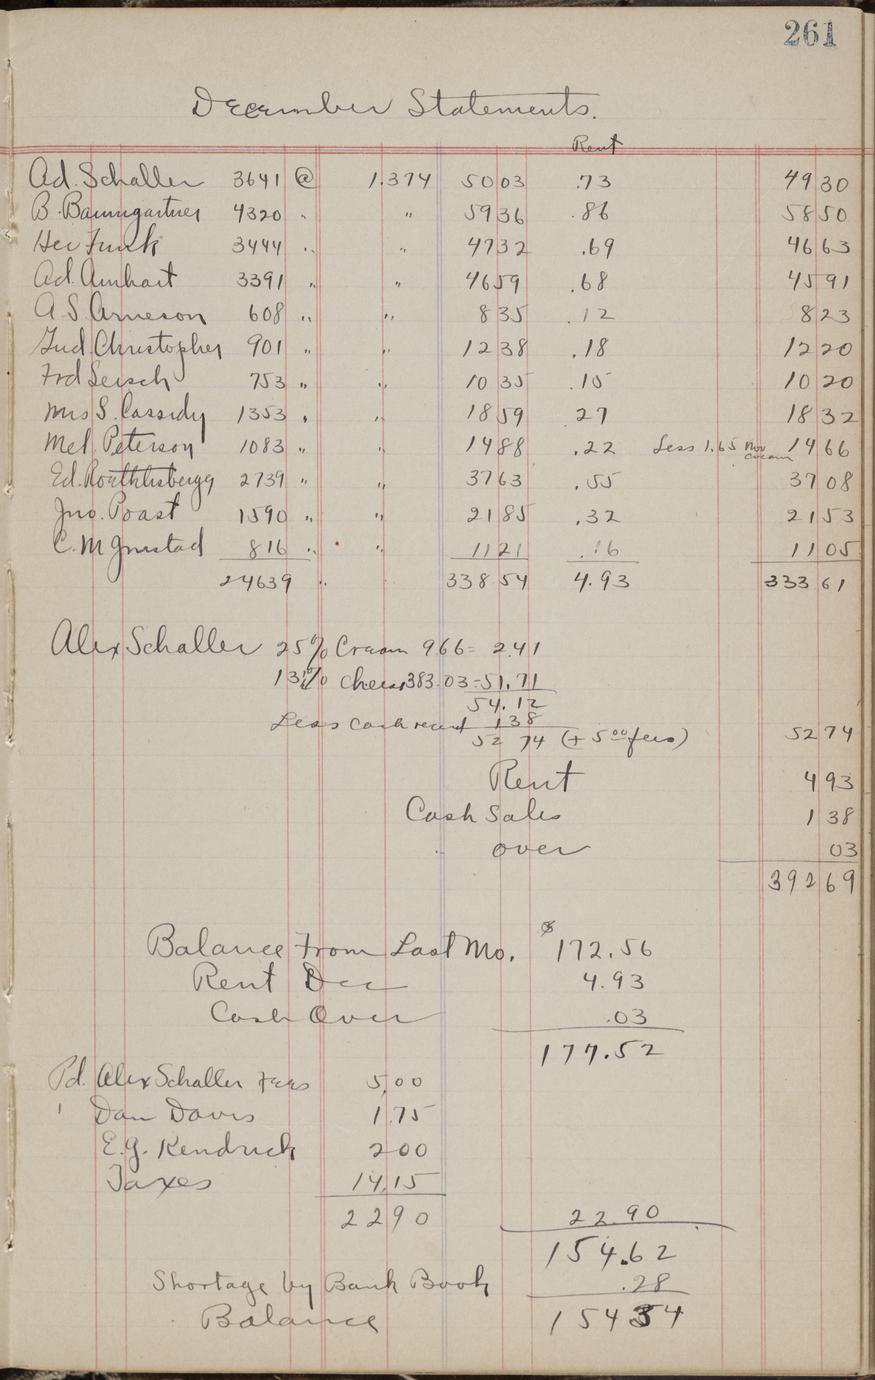 261
December Statements.
Rent
Ad. Schaller 3641 @ 1.374 50 03 .73 49 30
B. Baumgartner 4320 " " 59 36 .86 58 50
Her Funk 3444 " " 47 32 .69 46 63
Ad. Amhart 3391 " " 46 59 .68 45 91
A S. Arneson 608 " " 8 35 .12 8 23
Gud. Christopher 901 " " 12 38 .18 12 20
Frd Leisch 753 " " 10 35 .15 10 20
Mrs S. Cassidy 1353 " " 18 59 27 18 32
Mel. Peterson 1083 " " 14 88 .22 Less 1.65 Nov cream 14 66
Ed. Roethlisberger 2739 " " 37 63 .55 37 08
Jno. Poast 1590 " " 21 85 .32 21 53
C. M Gnustad 816 " " 11 21 .16 11 05
24639 " 338 54 4.93 333 61
Alex Schaller 25% Cream 966 = 2.41
13½% Chees 383.03 = 51.71
54.12
Less cash recent 1 38
52 74 (+ 5 00 fees) 52 74
Rent 4 93
Cash Sales 1 38
" over 03
392 69
Balance From Last Mo. $ 172.56
Rent Dec 4.93
Cash Over .03
177.52
Pd. Alex Schaller Fees 5.00
" Dan Davis 1.75
E.G. Kendrick 2 00
Taxes 14.15
22 90 22.90
154.62
Shortage by Bank Book .28
Balance 154 34